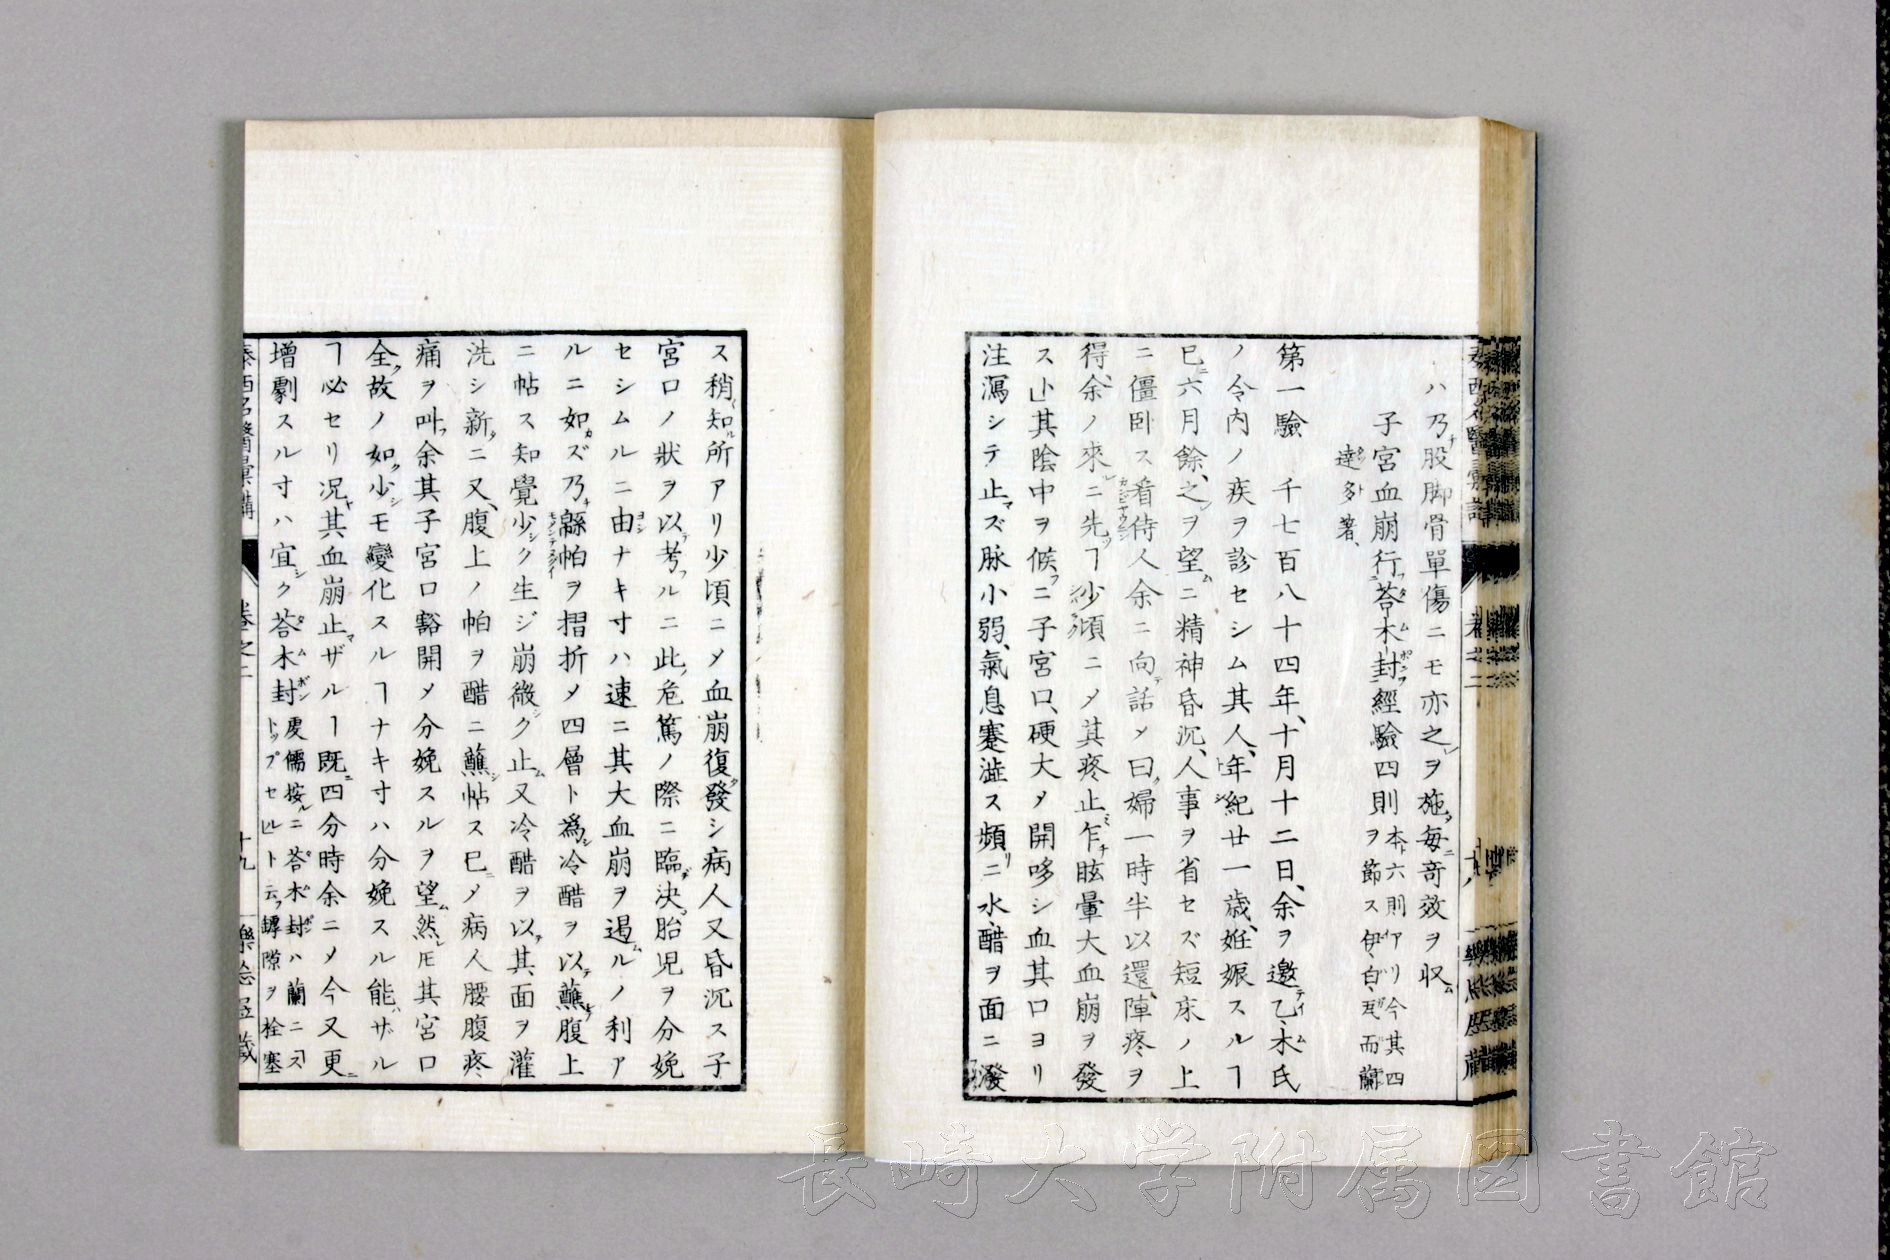 ハ乃股脚骨單傷ニモ亦之ヲ施毎竒效ヲ収
子宮血崩行荅木封經驗四則ヲ節ス本ト六則アリ今其四
伊白瓦而蘭
達多著、
第一驗 千七百八十四年、十月十二日、余ヲ邀乙木氏
ノ令内ノ疾ヲ診セシム其人、年紀廿一歳、姙娠スルヿ
已六月餘、之ヲ望ニ精神昏沉、人事ヲ省セズ短床ノ上
ニ僵卧ス看侍人余ニ向話メ曰婦一時半以還、陣疼ヲ
得、余ノ來ニ先ヿ少頃ニメ其疼止乍眩暈大血崩ヲ發
ス其陰中ヲ候ニ子宮口、硬大メ開哆シ血其口ヨリ
注瀉シテ止ズ脉小弱、氣息蹇澁ス頻ニ水、醋ヲ面ニ潑
ス稍知所アリ少頃ニメ血崩復發シ病人又昏沉ス子
宮口ノ狀ヲ以考ルニ此危篤ノ際ニ臨決胎児ヲ分娩
セシムルニ由ナキ寸ハ速ニ其大血崩ヲ遏ルノ利ア
ルニ如ズ乃緜帕ヲ摺折メ四層ト爲冷醋ヲ以蘸腹上
ニ帖ス知覺少ク生ジ崩微ク止又冷醋ヲ以其面ヲ灌
洗シ新ニ又、腹上ノ帕ヲ醋ニ蘸帖ス已メ病人腰腹疼
痛ヲ叫余其子宮口豁開メ分娩スルヲ望然𪜈其宮口
全故ノ如少モ變化スルヿナキ寸ハ分娩スル能ザル
ヿ必セリ况其血崩止ザルヿ既四分時余ニメ今又更
増劇スル寸ハ宜ク荅木封度儒按ニ荅木封ハ蘭ニヨス
トップセルト云罅隙ヲ栓塞
泰西名醫彙講 卷之二 十九
長崎大学附属図書館